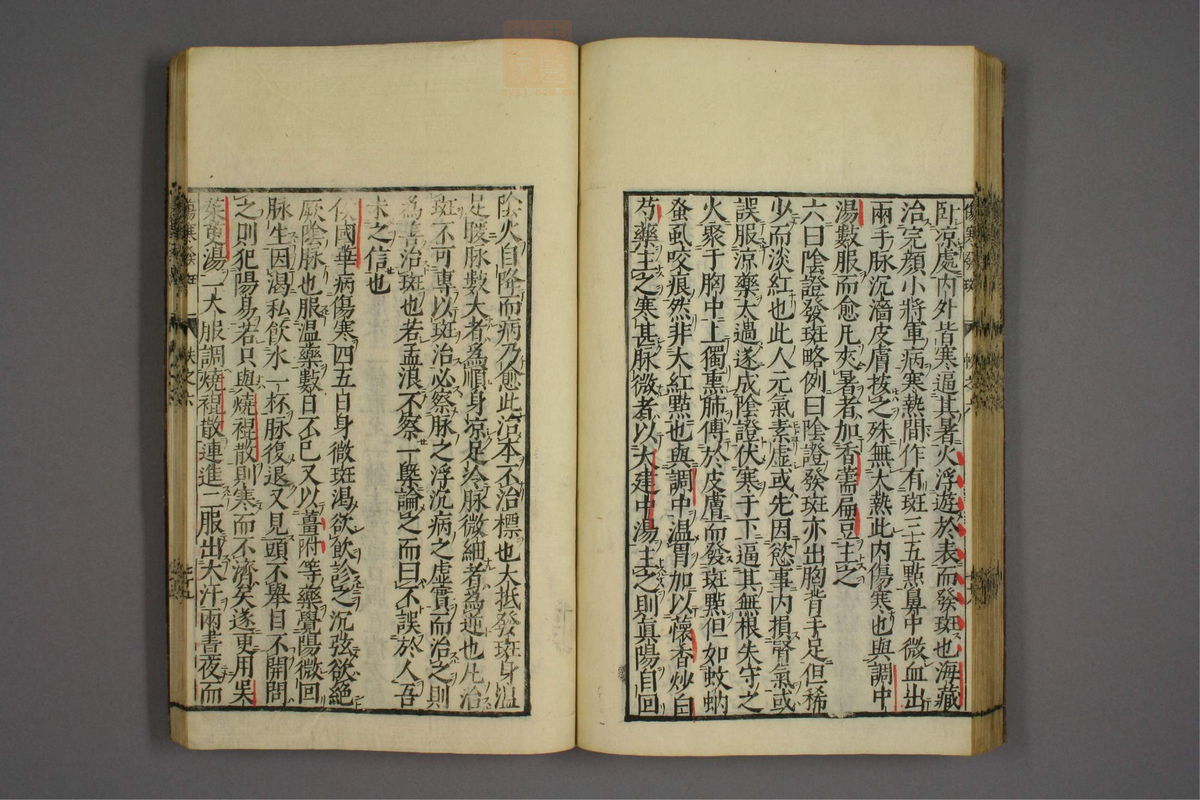 卧凉處内外皆寒逼其暑火浮遊於表而發斑也海藏
治完顔小將軍病寒熱間作有斑三五點鼻中微血出
兩手脉沉濇皮膚按之殊無大熱此内傷寒也與調中
湯數服而愈凡夾暑者加香薷扁豆主之
六曰陰證發斑略例曰陰證發斑亦出胸背手足但稀
少而淡紅也此人元氣素虚或先因慾事内損腎氣或
誤服凉藥太過遂成陰證伏寒于下逼其無根失守之
火聚于胸中上獨熏肺傳於皮膚而發斑點但如蚊蚋
蚤虱咬痕然非大紅點也與調中温胃加以懷香炒白
芍藥主之寒甚脉微者以大建中湯主之則真陽自回
陰火自降而病乃愈此治本不治標也大抵發斑身温
足暖脉數大者為順身凉足冷脉微細者為逆也凡治
斑不可專以斑治必察脉之浮沉病之虚實而治之則
為善治斑也若孟浪不察一槩論之而曰不誤於人吾
未之信也
侯國華病傷寒四五日身微斑渴欲飲診之沉弦欲絶
厥陰脉也服温藥數日不已又以薑附等藥覺陽微回
脉生因渴私飲水一杯脉復退又見頭不舉目不開問
之則犯陽易若只與燒裩散則寒而不濟矣遂更用吴
茱萸湯一大服調燒裩散連進二服出大汗兩晝夜而